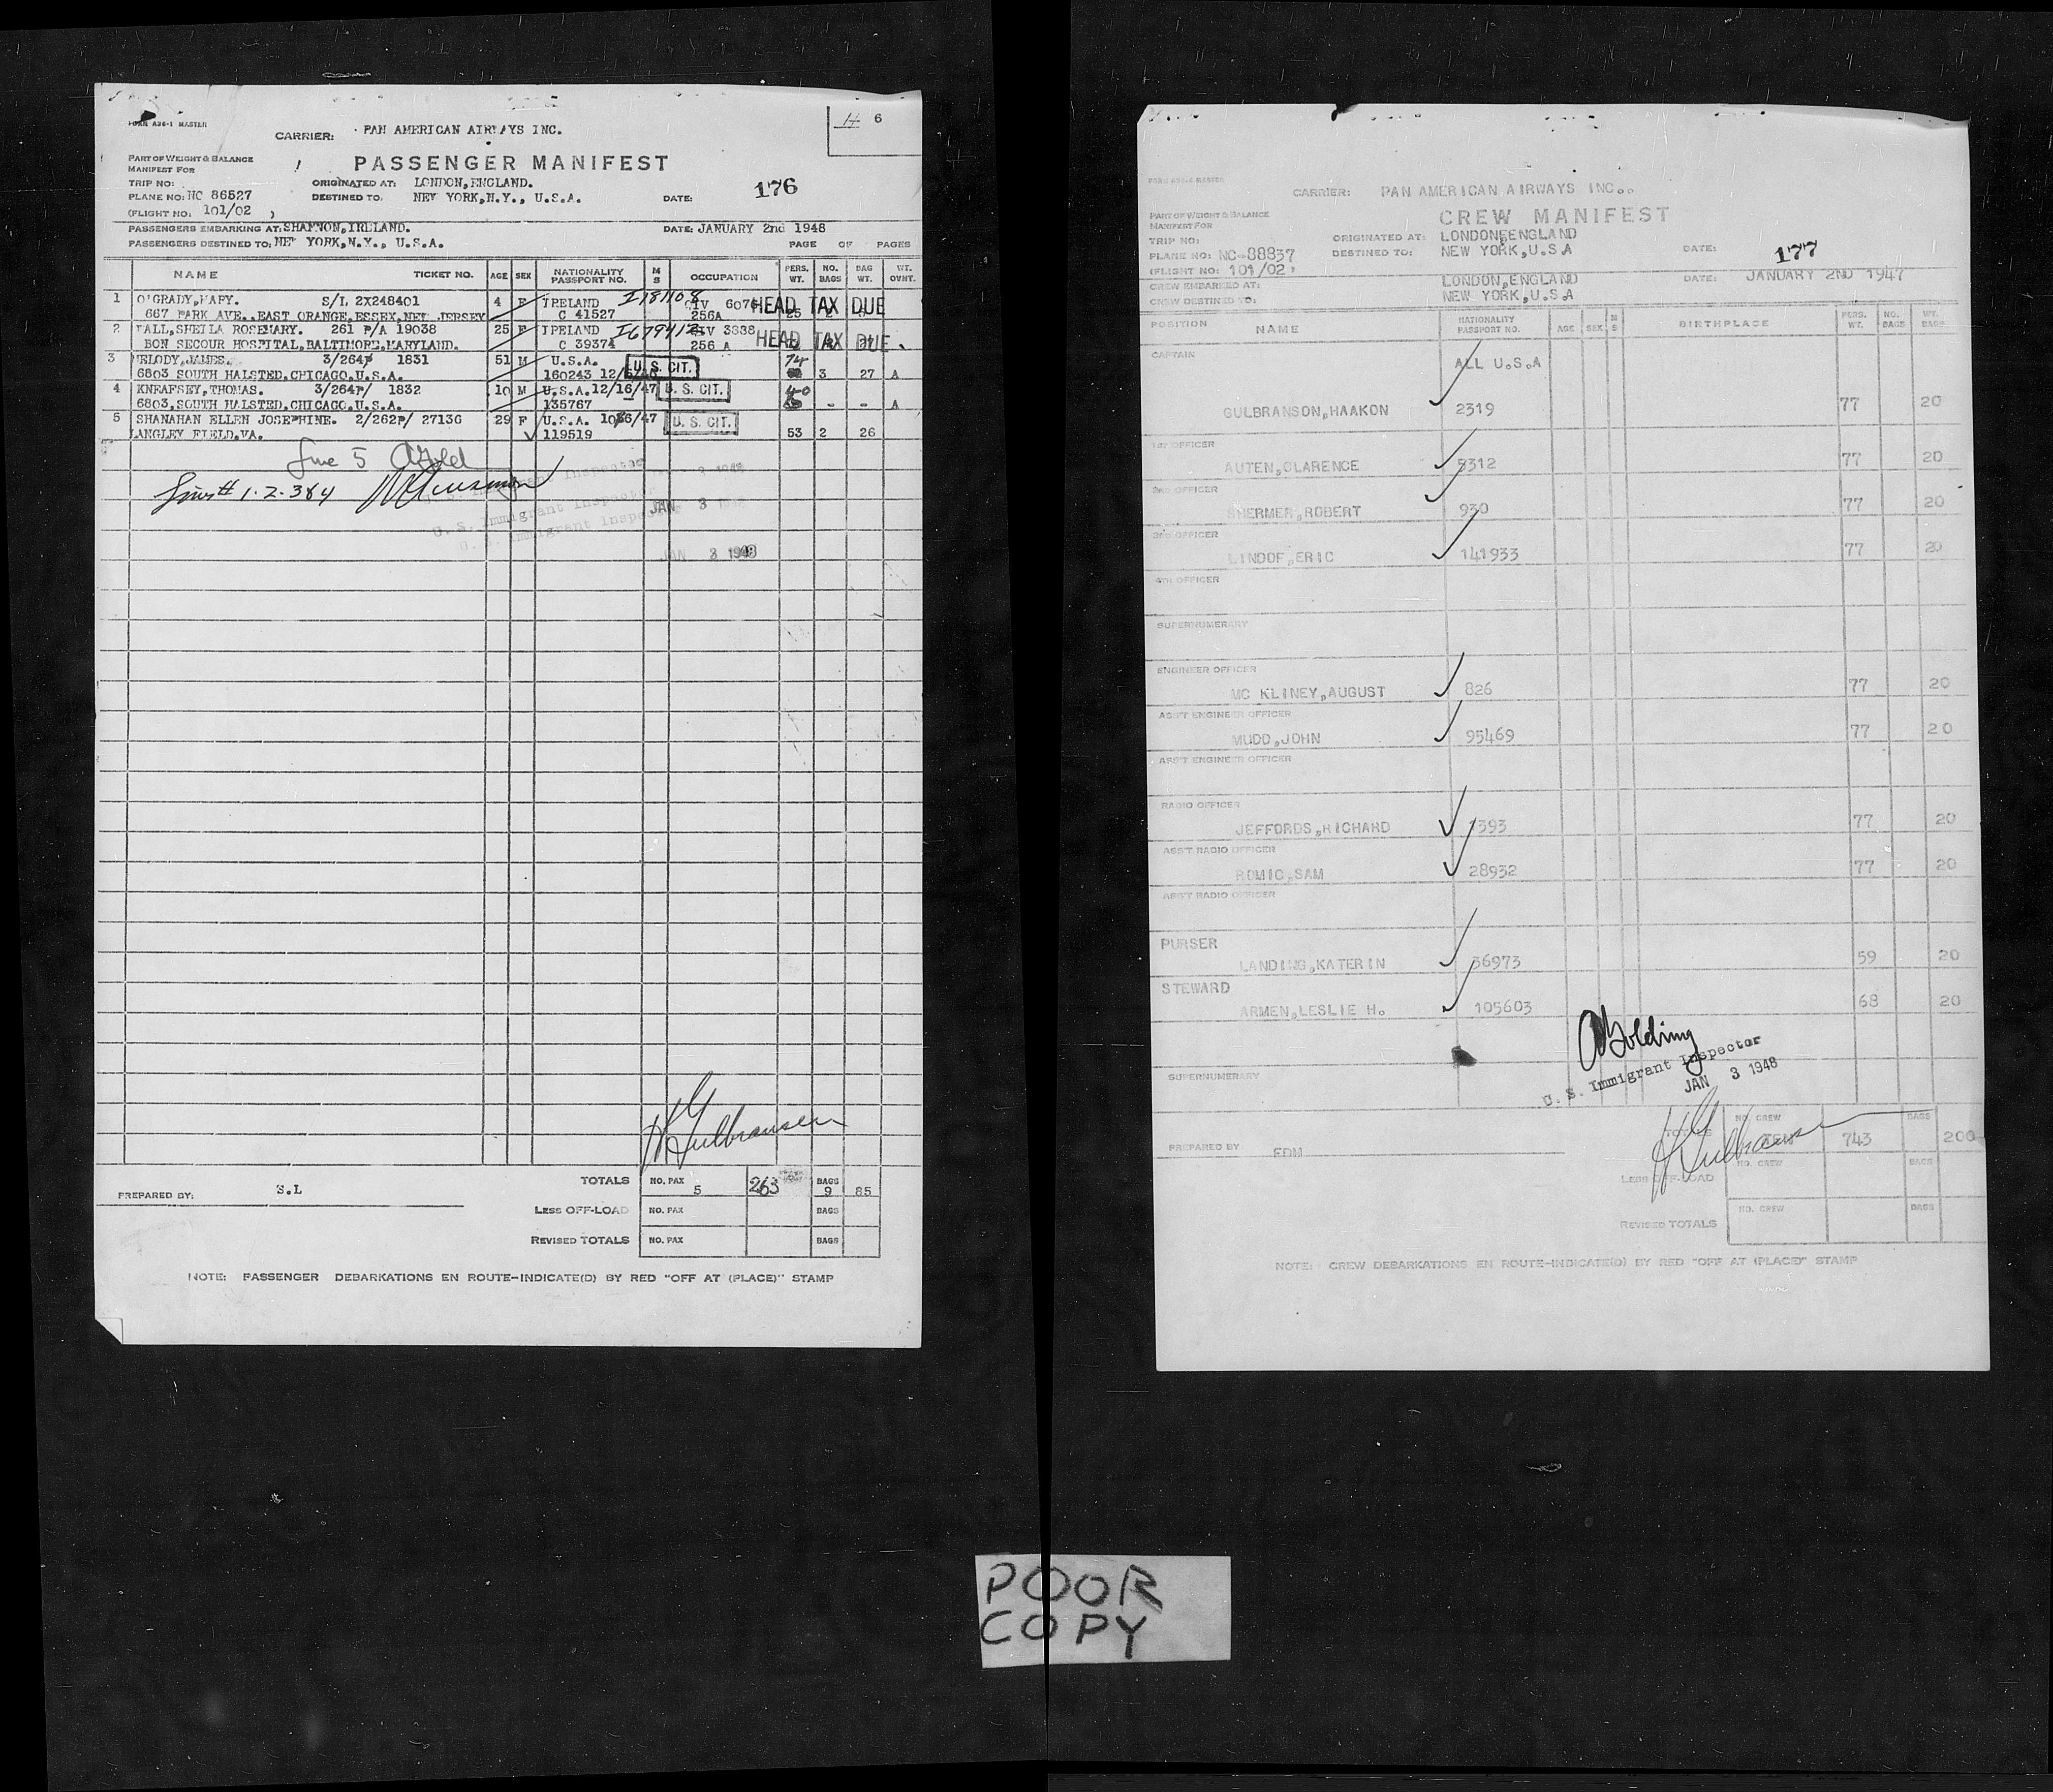 FORM A36-1 MASTER
CARRIER: PAN AMERICAN AIRWAYS INC.
H 6
PART OF WEIGHT & BALANCE
MANIFEST FOR
PASSENGER MANIFEST
TRIP NO:
ORIGINATED AT: LONDON, ENGLAND.
176
PLANE NO: NC 86527
DESTINED TO: NEW YORK, N.Y., U.S.A.
DATE:
(FLIGHT NO: 101/02 )
PASSENGERS EMBARKING AT: SHANNON, IRELAND.
DATE: JANUARY 2nd 1948
PASSENGERS DESTINED TO: NEW YORK, N.Y., U.S.A.
PAGE OF PAGES
NAME TICKET NO. AGE SEX NATIONALITY PASSPORT NO. M S OCCUPATION PERS. WT. NO. BAGS BAG WT. WT. OVNT.
1 O'GRADY, MARY. S/L 2X248401 4 F IRELAND I181108 QIV 6076 HEAD TAX DUE
667 PARK AVE., EAST ORANGE, ESSEX, NEW JERSEY C 41527 256A 25
2 WALL, SHEILA ROSEMARY. 261 P/A 19038 25 F IRELAND I679412 QIV 3838 HEAD TAX DUE
BON SECOUR HOSPITAL, BALTIMORE, MARYLAND. C 39374 256 A
3 MELODY, JAMES. 3/264P 1831 51 M U.S.A. U.S. CIT. 74
6803 SOUTH HALSTED, CHICAGO, U.S.A. 160243 3 27 A
4 KNEAFSEY, THOMAS. 3/264P/ 1832 10 M U.S.A. 12/16/47 U.S. CIT. 40
6803, SOUTH HALSTED, CHICAGO, U.S.A. 135767 - - A
5 SHANAHAN ELLEN JOSEPHINE. 2/262P/ 27136 29 F U.S.A. U.S. CIT.
LANGLEY FIELD, VA. 119519 53 2 26
Line 5
Lines # 1. 2. 3 & 4
U. S. Immigrant Inspector JAN 3
U. S. Immigrant Inspector
JAN 3 1948
H Gulbransen
TOTALS NO. PAX 5 263 BAGS 9 85
PREPARED BY: S.L
LESS OFF-LOAD NO. PAX BAGS
REVISED TOTALS NO. PAX BAGS
NOTE: PASSENGER DEBARKATIONS EN ROUTE-INDICATE(D) BY RED "OFF AT (PLACE)" STAMP
CARRIER: PAN AMERICAN AIRWAYS INC..
PART OF WEIGHT & BALANCE
MANIFEST FOR
CREW MANIFEST
TRIP NO:
ORIGINATED AT: LONDON, ENGLAND
177
PLANE NO: NC-88837
DESTINED TO: NEW YORK, U.S.A
DATE:
(FLIGHT NO: 101/02,
CREW EMBARKED AT: LONDON, ENGLAND
DATE: JANUARY 2ND 1947
CREW DESTINED TO: NEW YORK, U.S.A
POSITION NAME NATIONALITY PASSPORT NO. AGE SEX M S BIRTHPLACE PERS. WT. NO. BAGS WT. BAGS
CAPTAIN ALL U.S.A
GULBRANSON, HAAKON 2319 77 20
1ST OFFICER
AUTEN, CLARENCE 5312 77 20
2ND OFFICER
SHERMER, ROBERT 930 77 20
3RD OFFICER
LINDOF, ERIC 141933 77 20
4TH OFFICER
SUPERNUMERARY
ENGINEER OFFICER
MC KLINEY, AUGUST 826 77 20
ASS'T ENGINEER OFFICER
MUDD, JOHN 95469 77 20
ASS'T ENGINEER OFFICER
RADIO OFFICER
JEFFORDS, RICHARD 1393 77 20
ASS'T RADIO OFFICER
ROMIC, SAM 28932 77 20
ASS'T RADIO OFFICER
PURSER
LANDING, KATERIN 36973 59 20
STEWARD
ARMEN, LESLIE H. 105603 68 20
A Golding
U. S. Immigrant Inspector
JAN 3 1948
SUPERNUMERARY
H Gulbransen
TOTALS NO. CREW TEN 743 BAGS 200
PREPARED BY EDM
LESS OFF-LOAD NO. CREW BAGS
REVISED TOTALS NO. CREW BAGS
NOTE: CREW DEBARKATIONS EN ROUTE-INDICATE(D) BY RED "OFF AT (PLACE)" STAMP
POOR
COPY